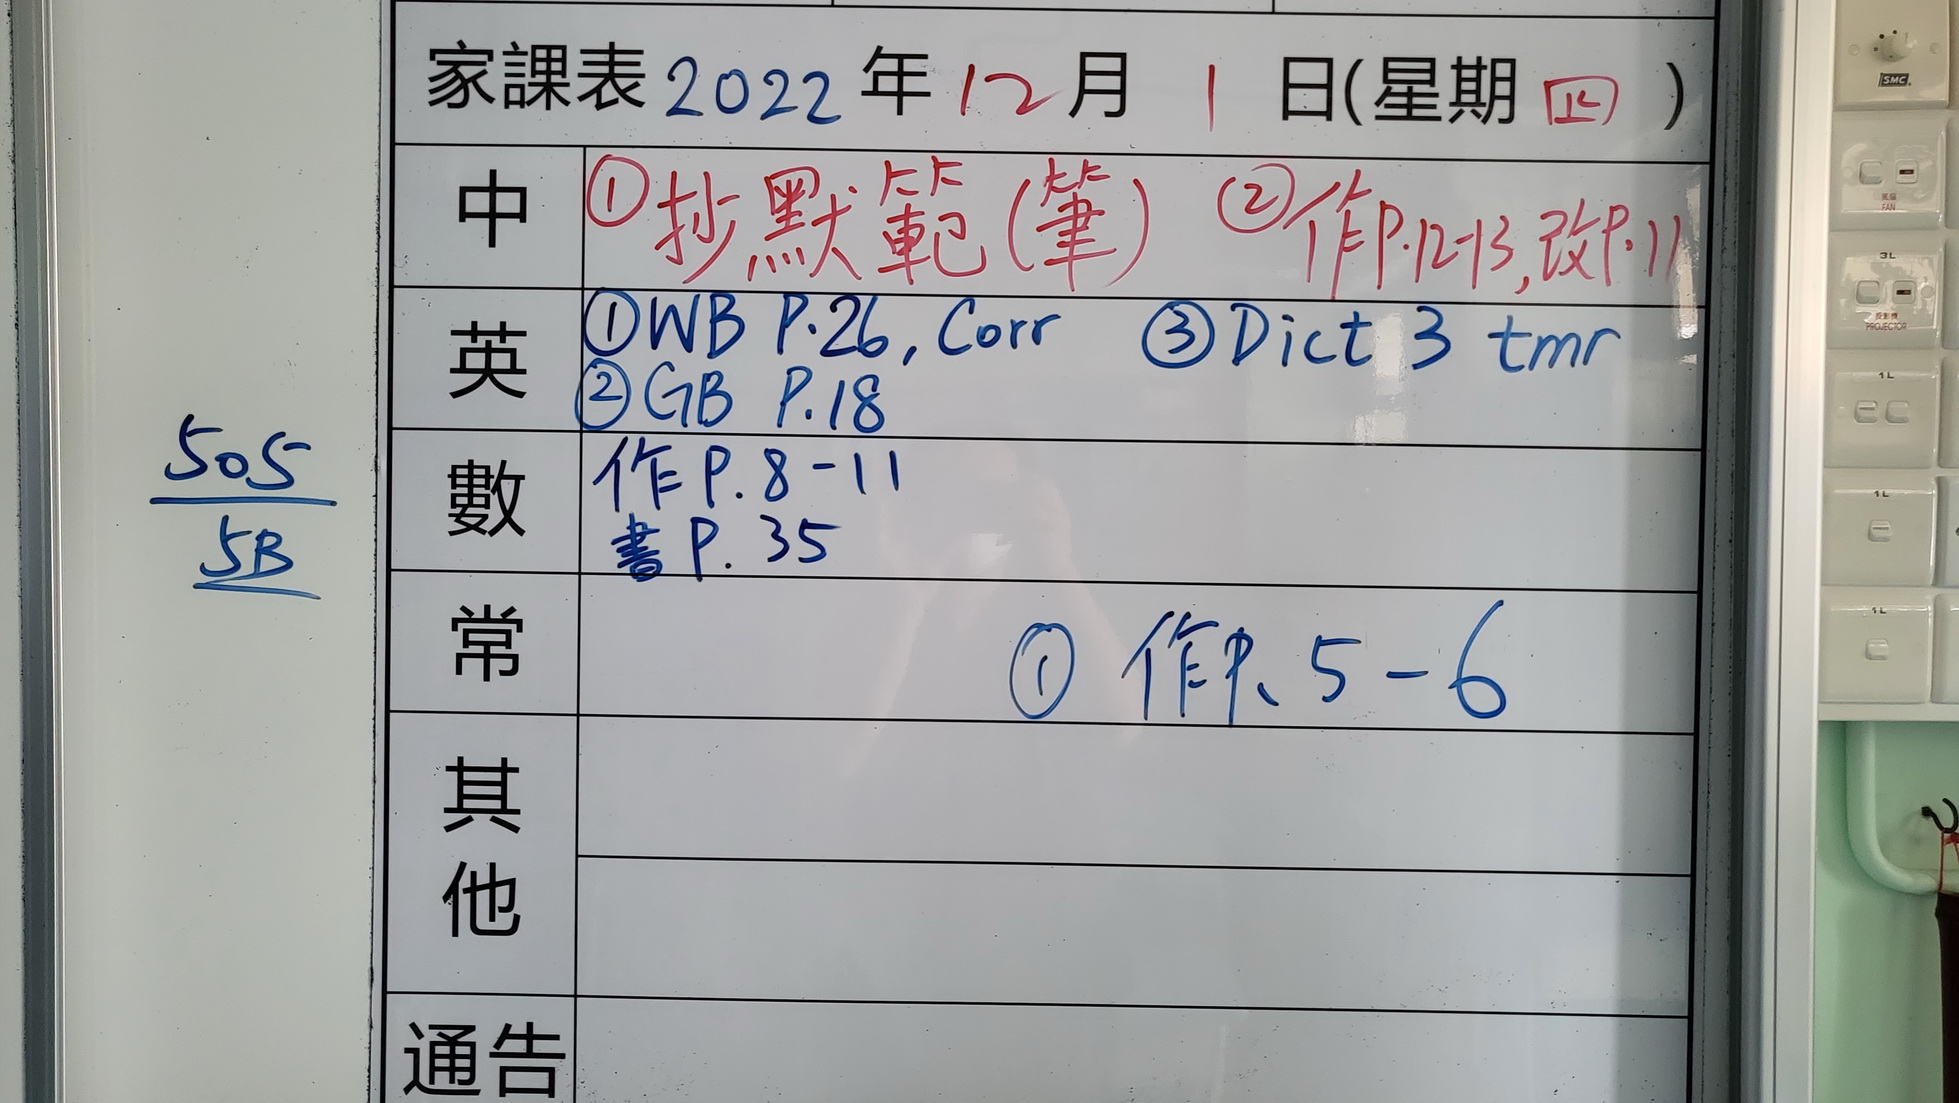 家課表 2022 年 12 月 1 日(星期 四 )
中 ①抄默範(筆) ②作P.12-13,改P.11
英 ①WB P.26, Corr ③Dict 3 tmr
②GB P.18
數 作P. 8-11
書P. 35
常 ① 作P、5-6
其他
通告
505
5B
SMC
風扇
FAN
3L
投影機
PROJECTOR
1L
1L
1L